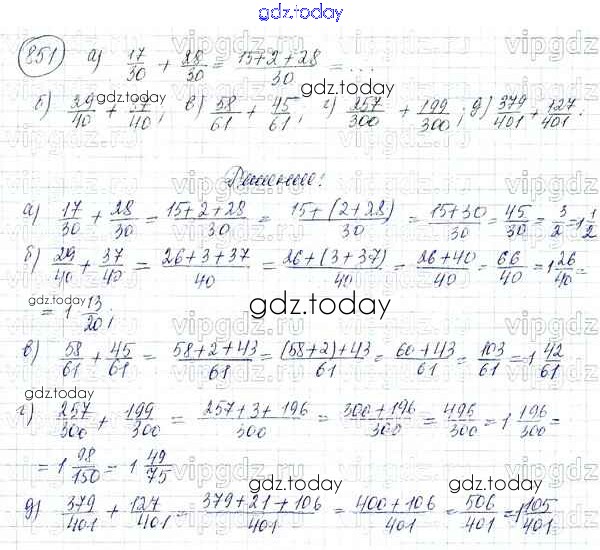 gdz.today
851 а) 17/30 + 28/30 = 15+2+28/30 = ...
б) 29/40 + 37/40; в) 58/61 + 45/61; г) 257/300 + 199/300; д) 379/401 + 127/401.
Решение:
а) 17/30 + 28/30 = 15+2+28/30 = 15+(2+28)/30 = 15+30/30 = 45/30 = 3/2 = 1 1/2
б) 29/40 + 37/40 = 26+3+37/40 = 26+(3+37)/40 = 26+40/40 = 66/40 = 1 26/40 =
= 1 13/20;
в) 58/61 + 45/61 = 58+2+43/61 = (58+2)+43/61 = 60+43/61 = 103/61 = 1 42/61
г) 257/300 + 199/300 = 257+3+196/300 = 300+196/300 = 496/300 = 1 196/300 =
= 1 98/150 = 1 49/75
д) 379/401 + 127/401 = 379+21+106/401 = 400+106/401 = 506/401 = 1 105/401